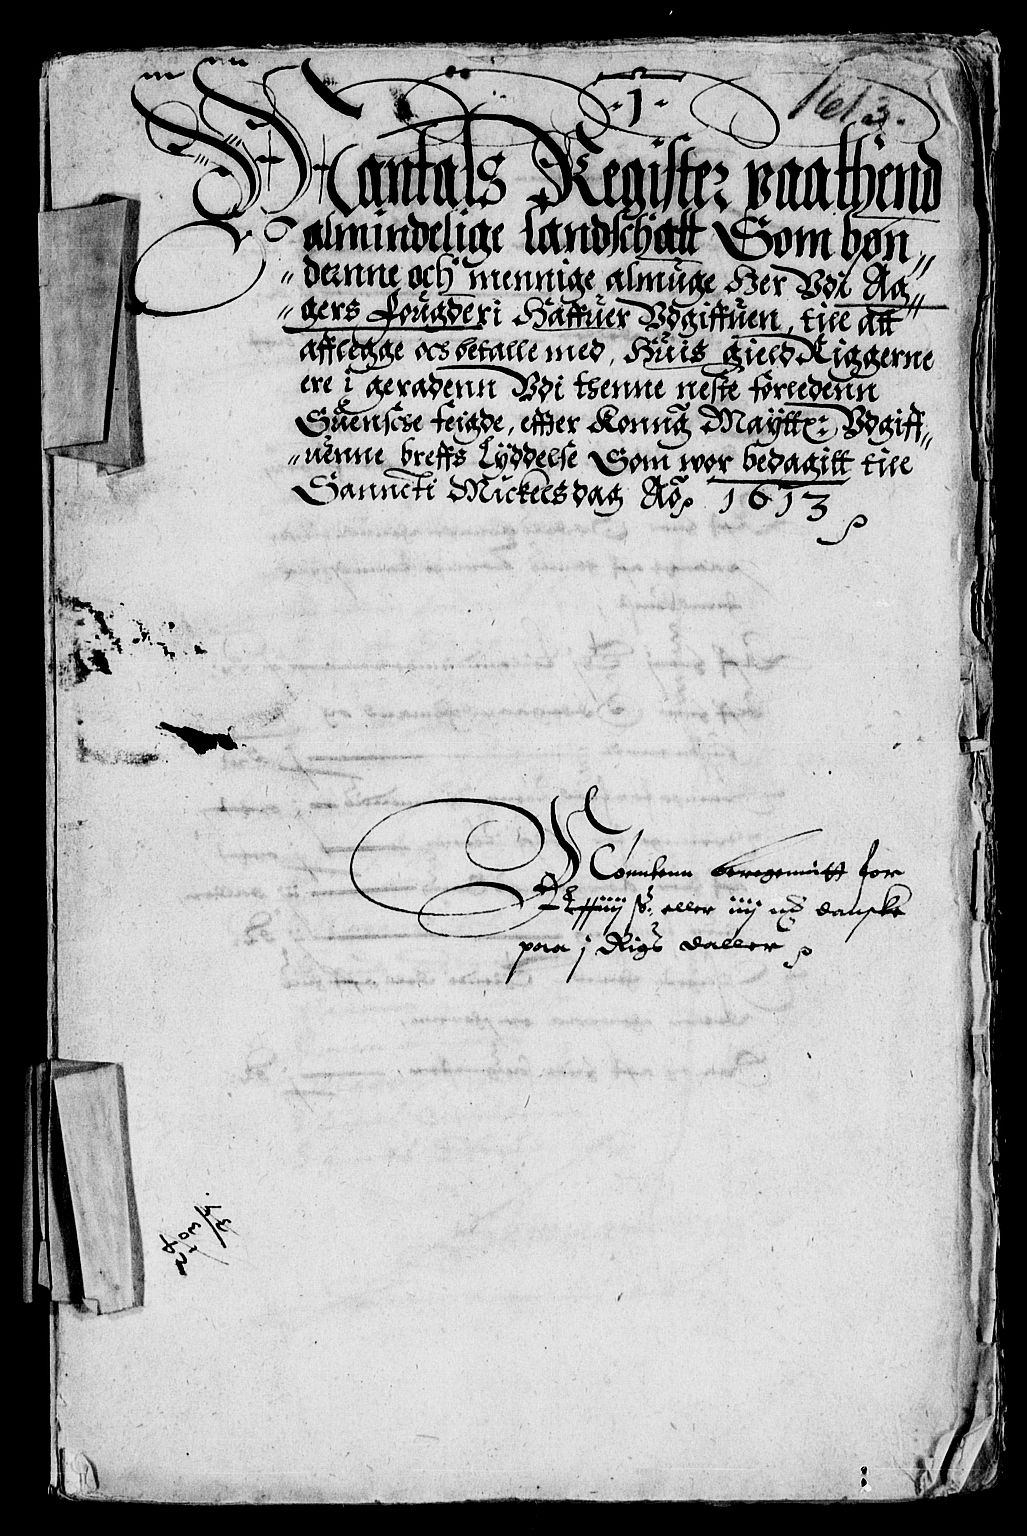 1613.
·1·
Mantals Register paa thend
almindelige landschatt Som bøn„
„dernne och mennige almuge Her Vdi Ag„
„gers Fougderi Haffuer Vdgiffuen, till att
afflegge och betalle med, Huis gield Riggerne
ere i geradenn Vdi thenne neste forledenn
Suensche feigde, effter Konng Maÿttz: Vdgiff„
„uenne breffs Lÿddelse Som wor bedagitt till
Sanncti Mickelsdag Aõ, 1613
Mønnttenn beregennitt for
eller iiij danske
paa j Rigs daller